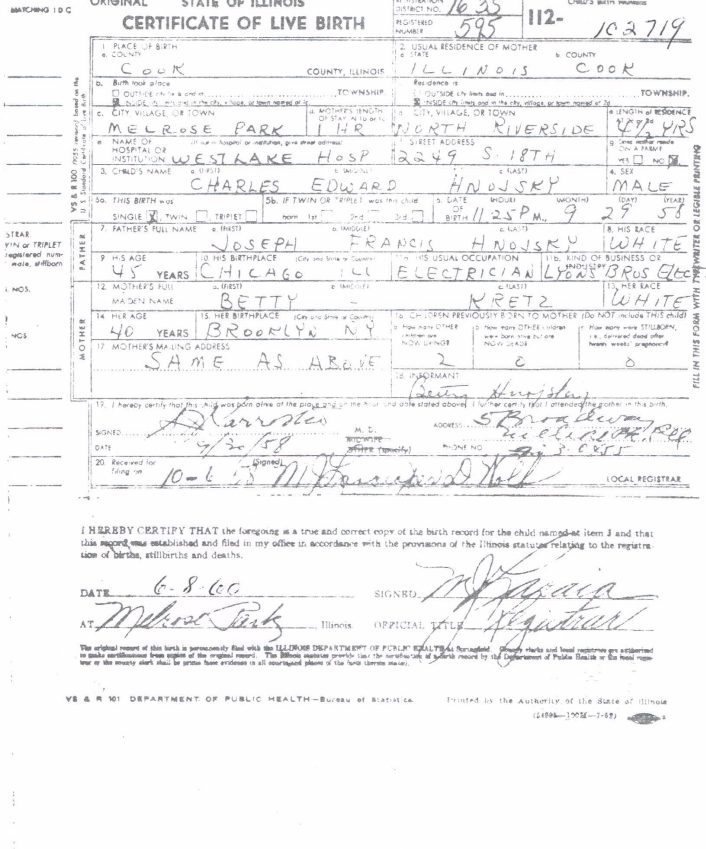 ORIGINAL STATE OF ILLINOIS
CERTIFICATE OF LIVE BIRTH
DISTRICT NO. 1635
REGISTERED NUMBER 595
112- 102719
MATCHING I D C
1. PLACE OF BIRTH
a. COUNTY COOK COUNTY, ILLINOIS
2. USUAL RESIDENCE OF MOTHER
a. STATE ILLINOIS b. COUNTY COOK
b. Birth took place
OUTSIDE city limits and in TOWNSHIP
INSIDE city limits and in the city, village, or town named at 1c
Residence is
OUTSIDE city limits and in TOWNSHIP.
INSIDE city limits and in the city, village, or town named at 2d
c. CITY, VILLAGE, OR TOWN MELROSE PARK
d. MOTHER'S LENGTH OF STAY IN 1b or 1c 1 HR
CITY, VILLAGE, OR TOWN NORTH RIVERSIDE
e. LENGTH of RESIDENCE YRS
e. NAME OF HOSPITAL OR INSTITUTION (If not in hospital or institution, give street address) WESTLAKE HOSP
STREET ADDRESS 2249 S. 18TH
g. Does mother reside ON A FARM? YES NO
3. CHILD'S NAME a. (FIRST) b. (MIDDLE) c. (LAST)
CHARLES EDWARD HNOJSKY
4. SEX MALE
5a. THIS BIRTH was SINGLE TWIN TRIPLET
5b. IF TWIN OR TRIPLET was this child born 1st 2nd 3rd
6. DATE OF BIRTH (HOUR) (MONTH) (DAY) (YEAR)
11:25 P M., 9 29 58
FATHER
7. FATHER'S FULL NAME a. (FIRST) b. (MIDDLE) c. (LAST)
JOSEPH FRANCIS HNOJSKY
8. HIS RACE WHITE
9. HIS AGE 45 YEARS
10. HIS BIRTHPLACE (City and State or Country) CHICAGO ILL
11a. HIS USUAL OCCUPATION ELECTRICIAN
11b. KIND OF BUSINESS OR INDUSTRY LYONS BROS ELEC
MOTHER
12. MOTHER'S FULL MAIDEN NAME a. (FIRST) b. (MIDDLE) c. (LAST)
BETTY - KRETZ
13. HER RACE WHITE
14. HER AGE 40 YEARS
15. HER BIRTHPLACE (City and State or Country) BROOKLYN NY
16. CHILDREN PREVIOUSLY BORN TO MOTHER (Do NOT include THIS child)
a. How many OTHER children are NOW LIVING? 2
b. How many OTHER children were born alive but are NOW DEAD? 0
c. How many were STILLBORN, i.e., delivered dead after twenty weeks' pregnancy? 0
17. MOTHER'S MAILING ADDRESS
SAME AS ABOVE
18. INFORMANT
Betty Hnojsky
19. I hereby certify that this child was born alive at the place and on the hour and date stated above. I further certify that I attended the mother in this birth.
SIGNED M. D. ADDRESS
MIDWIFE
OTHER (Specify)
DATE 9/30/58 PHONE NO
20. Received for filing on 10-6 58 (Signed) LOCAL REGISTRAR
VS & R 100
FILL IN THIS FORM WITH TYPEWRITER OR LEGIBLE PRINTING
I HEREBY CERTIFY THAT the foregoing is a true and correct copy of the birth record for the child named at item 3 and that
this record was established and filed in my office in accordance with the provisions of the Illinois statutes relating to the registra-
tion of births, stillbirths and deaths.
DATE 6-8-60 SIGNED
AT Melrose Park Illinois. OFFICIAL TITLE Registrar
The original record of this birth is permanently filed with the ILLINOIS DEPARTMENT OF PUBLIC HEALTH at Springfield. County clerks and local registrars are authorized
to make certifications from copies of the original record. The Illinois statutes provide that the certification of a birth record by the Department of Public Health or the local regis-
trar or the county clerk shall be prima facie evidence in all courts and places of the facts therein stated.
VS & R 101 DEPARTMENT OF PUBLIC HEALTH—Bureau of Statistics. Printed by the Authority of the State of Illinois